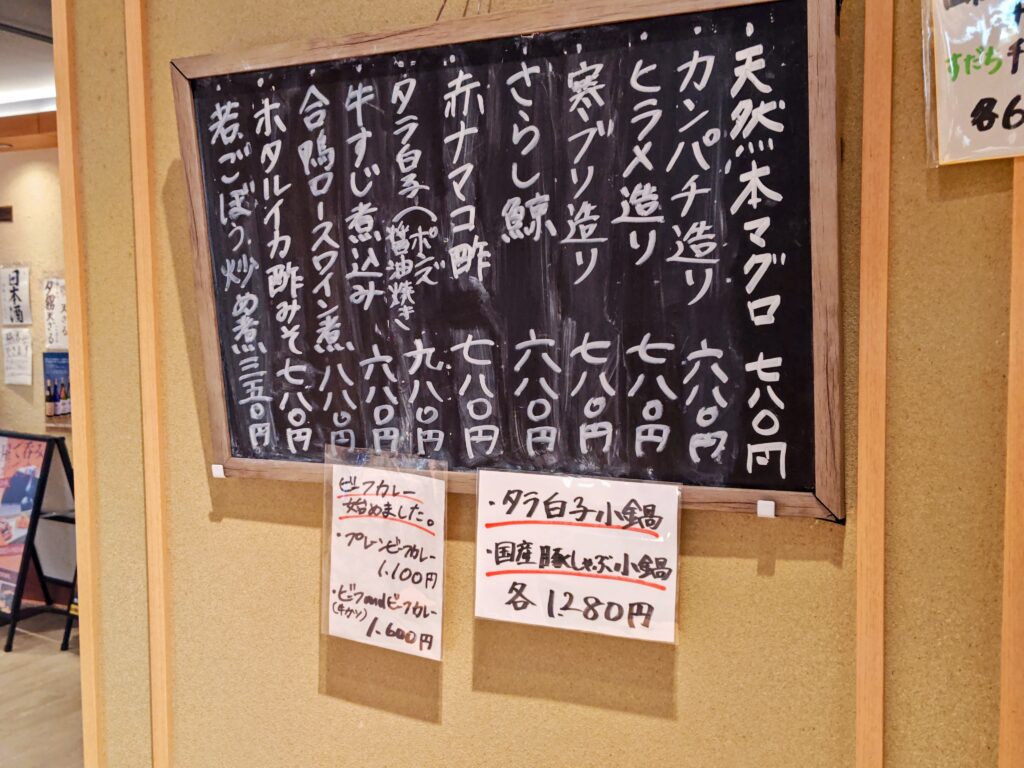 ・天然本マグロ 七八〇円
・カンパチ造り 六八〇円
・ヒラメ造り 七八〇円
・寒ブリ造り 七八〇円
・さらし鯨 六八〇円
・赤ナマコ酢 七八〇円
・タラ白子(ポンズ 醤油焼き) 九八〇円
・牛すじ煮込み 六八〇円
・合鴨ロースワイン煮 八八〇円
・ホタルイカ酢みそ 七八〇円
・若ごぼう炒め煮 三五〇円
ビーフカレー
始めました。
・プレーンビーフカレー
1.100円
・ビーフandビーフカレー
(牛カツ)
1.600円
・タラ白子小鍋
・国産豚しゃぶ小鍋
各1280円
すだち
各6
日本酒